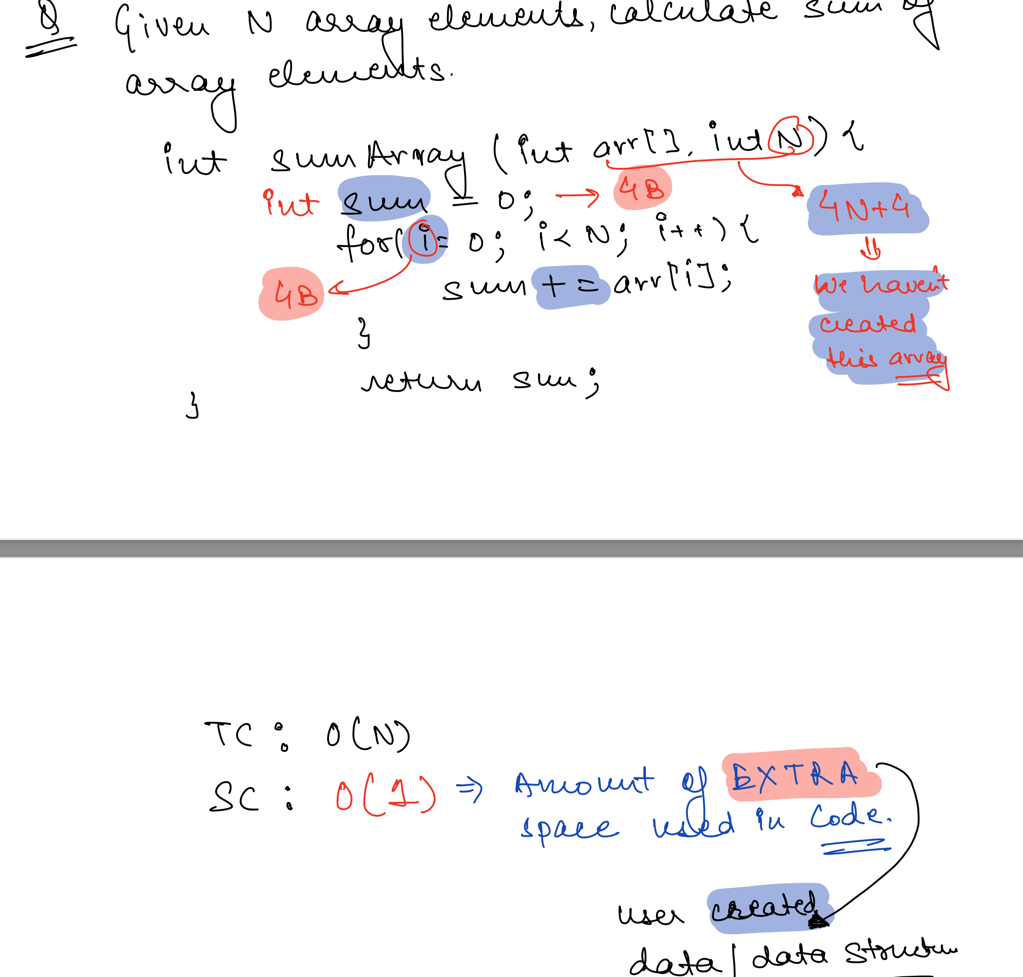 Q Given N array elements, calculate sum of
array elements.
int sumArray (int arr[], int N) {
int sum = 0; → 4B
4N+4
for(i = 0; i < N; i++) {
4B
sum += arr[i];
We haven't
created
this array
}
return sum;
}
TC : O(N)
SC : O(1) ⇒ Amount of EXTRA
space used in Code.
user created
data / data structure